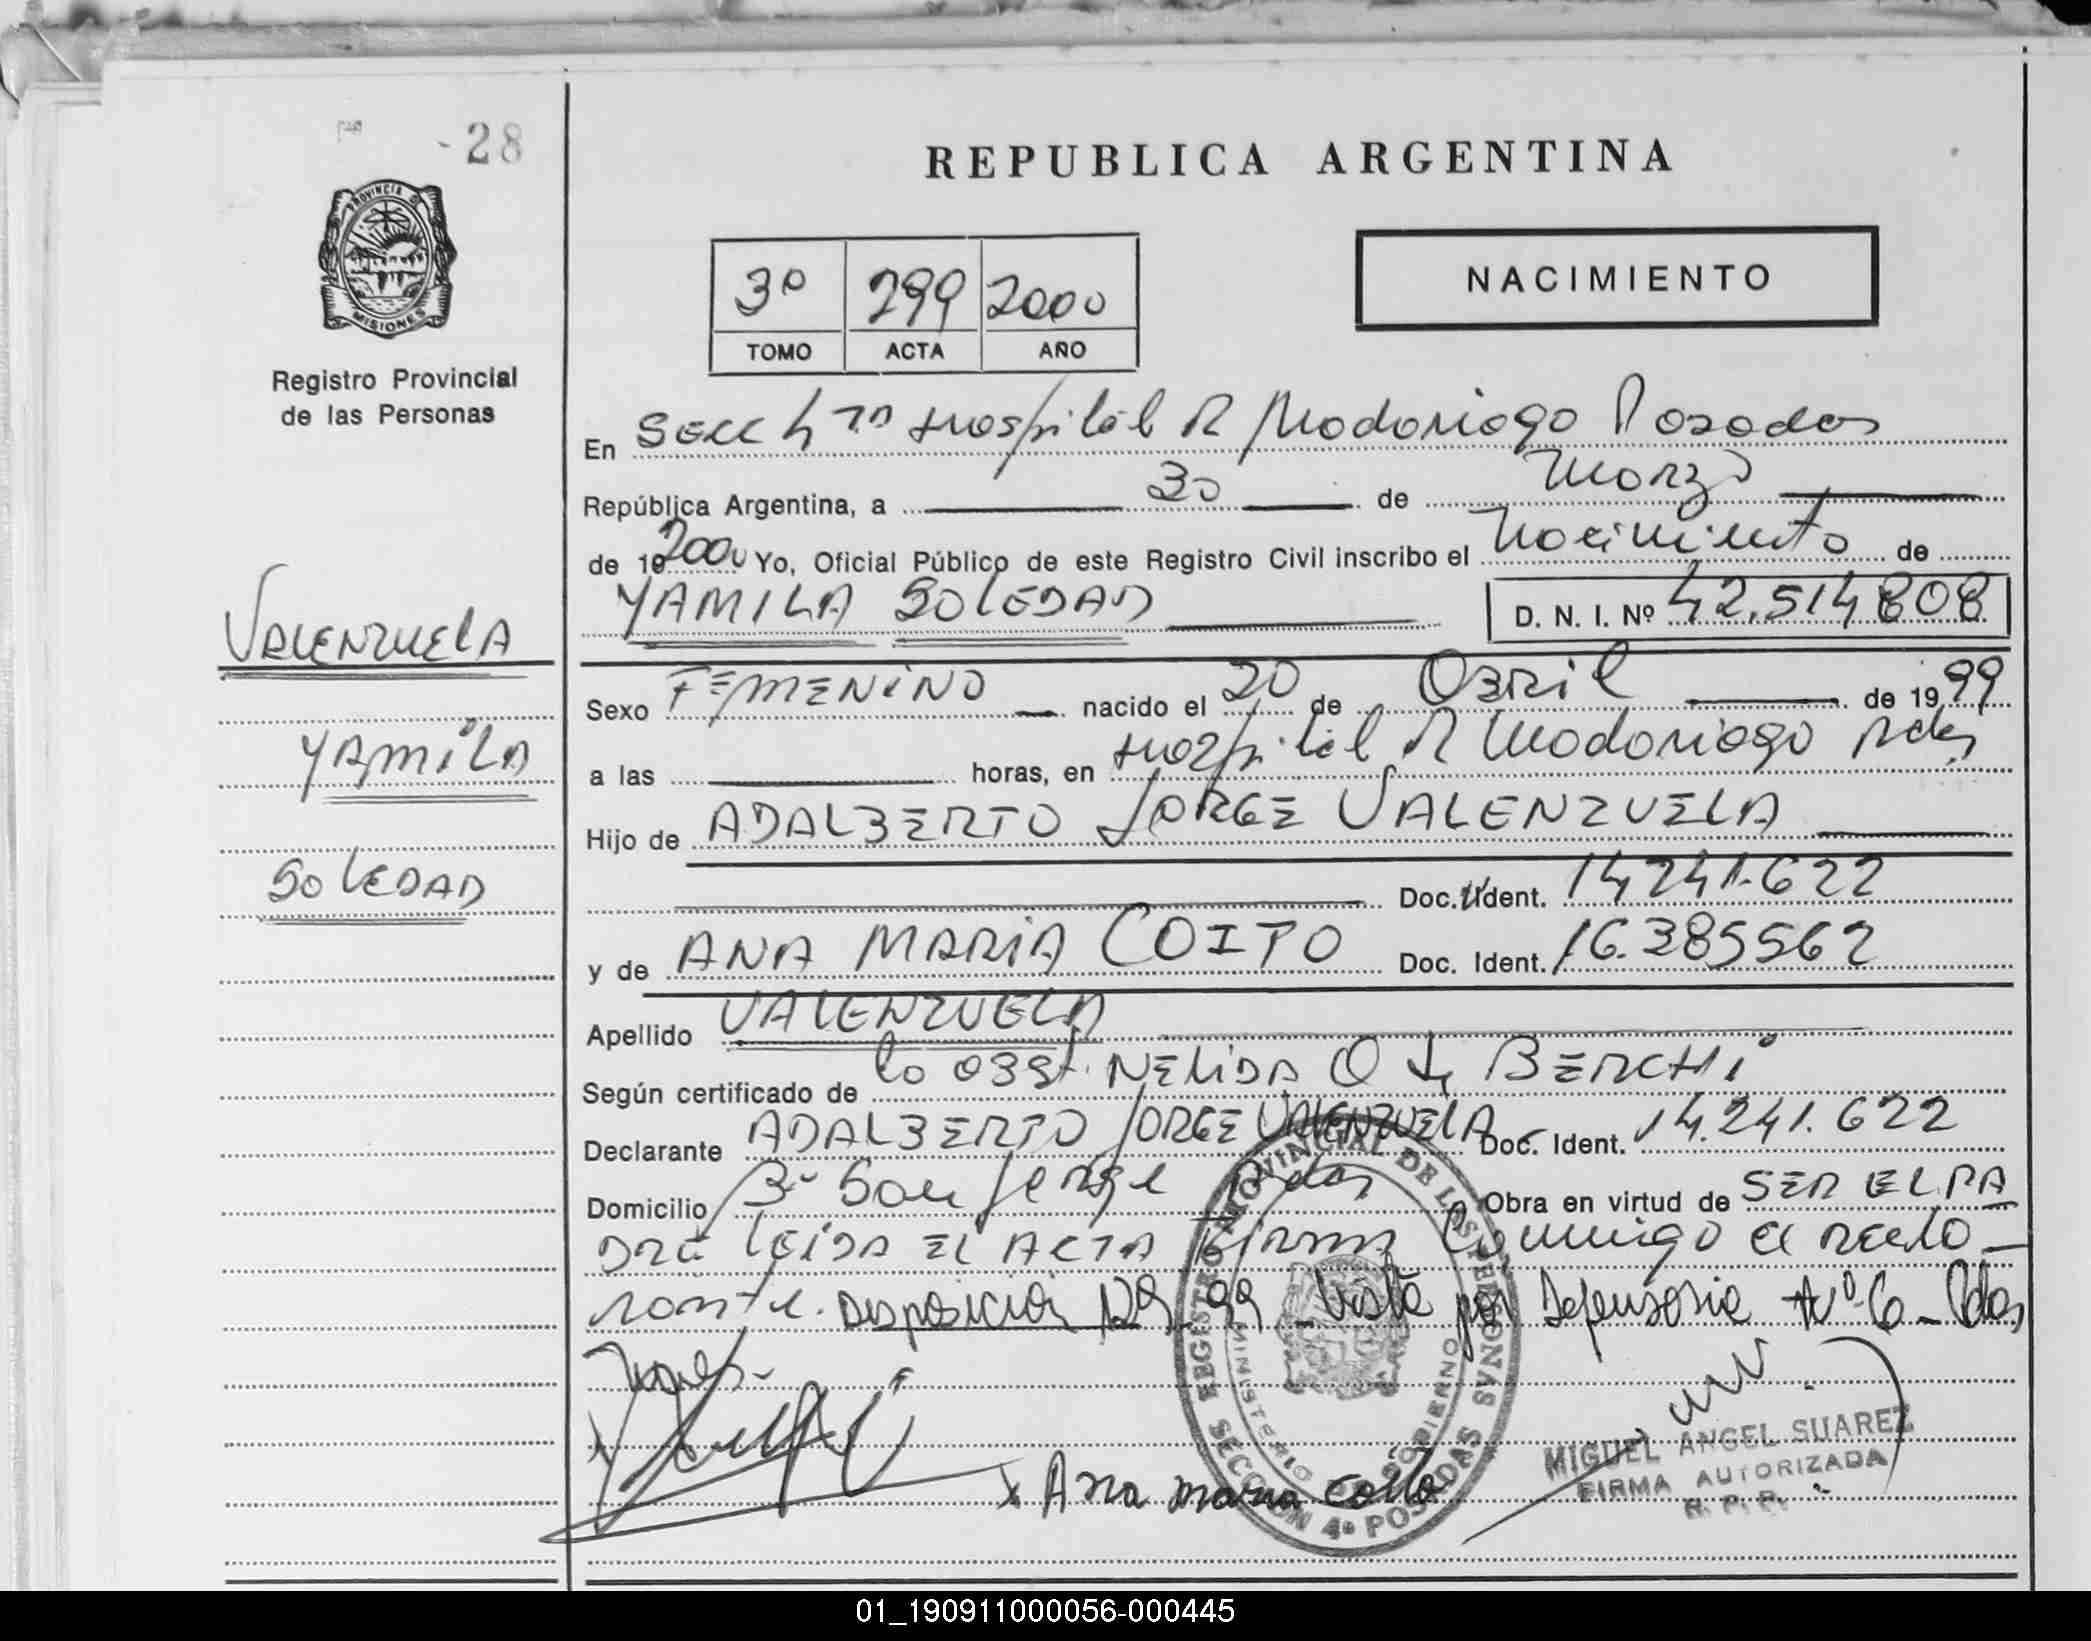 -28
PROVINCIA DE
MISIONES
Registro Provincial
de las Personas
REPUBLICA ARGENTINA
3º 299 2000
TOMO ACTA AÑO
NACIMIENTO
En SECC 4ta Hospital R Madariaga Posadas
República Argentina, a 30 de Marzo
de 19 2000 Yo, Oficial Público de este Registro Civil inscribo el Nacimiento de
YAMILA SOLEDAD D. N. I. Nº 42.514808
VALENZUELA
YAMILA
SOLEDAD
Sexo FEMENINO nacido el 20 de Abril de 1999
a las horas, en Hospital R Madariaga Pdas
Hijo de ADALBERTO JORGE VALENZUELA
Doc. Ident. 14241.622
y de ANA MARIA COITO Doc. Ident. 16.385562
Apellido VALENZUELA
Según certificado de la obst. NELIDA O L BERCHI
Declarante ADALBERTO JORGE VALENZUELA Doc. Ident. 14.241.622
Domicilio Bº San Jorge Pdas Obra en virtud de SER EL PA
DRE LEIDA EL ACTA Firma Conmigo el decla
rante. Disposición 99 Vista por Defensoria Nº 6 - Pdas
REGISTRO PROVINCIAL DE LAS PERSONAS
MINISTERIO DE GOBIERNO
SECCION 4º POSADAS
x Ana maria Coito
MIGUEL ANGEL SUAREZ
FIRMA AUTORIZADA
R. P. P.
01_190911000056-000445